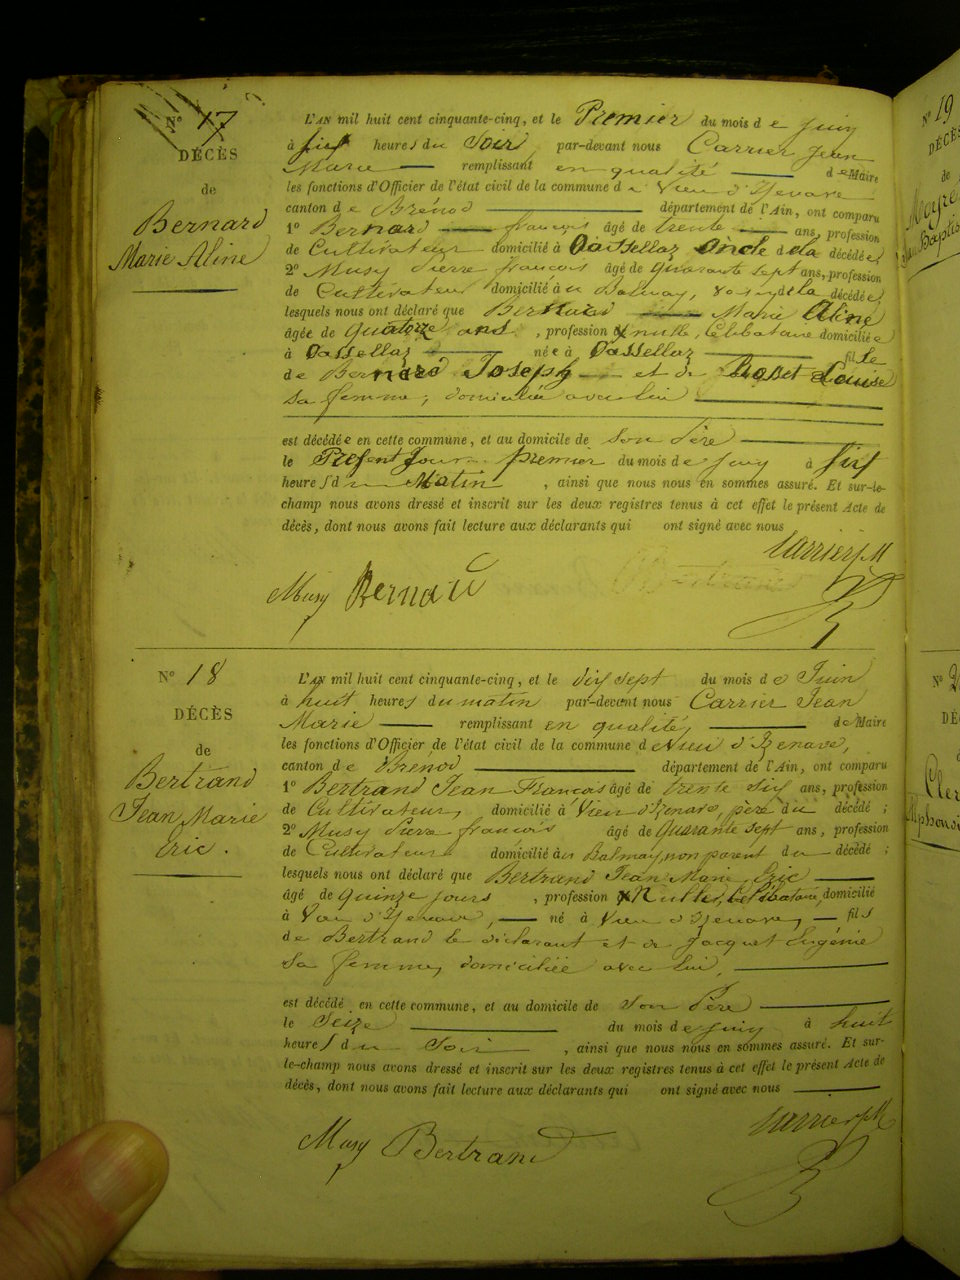 N° 17
DÉCÈS
de
Bernard
Marie Aline
L'AN mil huit cent cinquante-cinq, et le Premier du mois de Juin
à six heures du Soir, par-devant nous Carrier Jean
Marie remplissant en qualité de Maire
les fonctions d'Officier de l'état civil de la commune de Vieu d'Izenave
canton de Brénod département de l'Ain, ont comparu
1° Bernard françois âgé de trente ans, profession
de Cultivateur domicilié à Oassellaz Oncle de la décédée
2° Musy Pierre françois âgé de quarante sept ans, profession
de Cultivateur domicilié à Balmay, de la décédée
lesquels nous ont déclaré que Bernard Marie Aline
âgée de quatorze ans, profession nulle, Célibataire domiciliée
à Oassellaz née à Oassellaz fille
de Bernard Joseph et de Rosset Louise
sa femme, domiciliée avec lui
est décédée en cette commune, et au domicile de son Père
le Présent Jour premier du mois de Juin à six
heures du Matin, ainsi que nous nous en sommes assuré. Et sur-le-
champ nous avons dressé et inscrit sur les deux registres tenus à cet effet le présent Acte de
décès, dont nous avons fait lecture aux déclarants qui ont signé avec nous
Carrier J M
Musy Bernard
N° 18
DÉCÈS
de
Bertrand
Jean Marie
Eric.
L'AN mil huit cent cinquante-cinq, et le dix sept du mois de Juin
à huit heures du matin par-devant nous Carrier Jean
Marie remplissant en qualité, de Maire
les fonctions d'Officier de l'état civil de la commune de Vieu d'Izenave,
canton de Brénod département de l'Ain, ont comparu
1° Bertrand Jean François âgé de trente six ans, profession
de Cultivateur, domicilié à Vieu d'Izenave, père du décédé;
2° Musy Pierre françois âgé de quarante sept ans, profession
de Cultivateur domicilié à Balmay, non parent du décédé;
lesquels nous ont déclaré que Bertrand Jean Marie Eric
âgé de quinze jours, profession Nulle, Célibataire, domicilié
à Vieu d'Izenave, né à Vieu d'Izenave, fils
de Bertrand le déclarant et de Jacquet Eugénie
Sa femme, domiciliée avec lui,
est décédé en cette commune, et au domicile de son Père
le Seize du mois de Juin à huit
heures du Soir, ainsi que nous nous en sommes assuré. Et sur-
le-champ nous avons dressé et inscrit sur les deux registres tenus à cet effet le présent Acte de
décès, dont nous avons fait lecture aux déclarants qui ont signé avec nous
Carrier J M
Musy Bertrand
N° 19
DÉCÈS
de